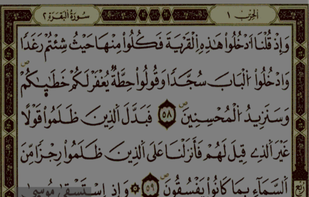 الجزب ١ سورة البقرة ٢
وَإِذْ قُلْنَا ادْخُلُوا هَٰذِهِ الْقَرْيَةَ فَكُلُوا مِنْهَا حَيْثُ شِئْتُمْ رَغَدًا
وَادْخُلُوا الْبَابَ سُجَّدًا وَقُولُوا حِطَّةٌ يُغْفَرْ لَكُمْ خَطَٰيَٰكُمْ
وَسَنَزِيدُ الْمُحْسِنِينَ ٥٨ فَبَدَّلَ الَّذِينَ ظَلَمُوا قَوْلًا
غَيْرَ الَّذِي قِيلَ لَهُمْ فَأَنزَلْنَا عَلَى الَّذِينَ ظَلَمُوا رِجْزًا مِّنَ
السَّمَآءِ بِمَا كَانُوا يَفْسُقُونَ ٥٩ وَإِذِ اسْتَسْقَىٰ مُوسَىٰ